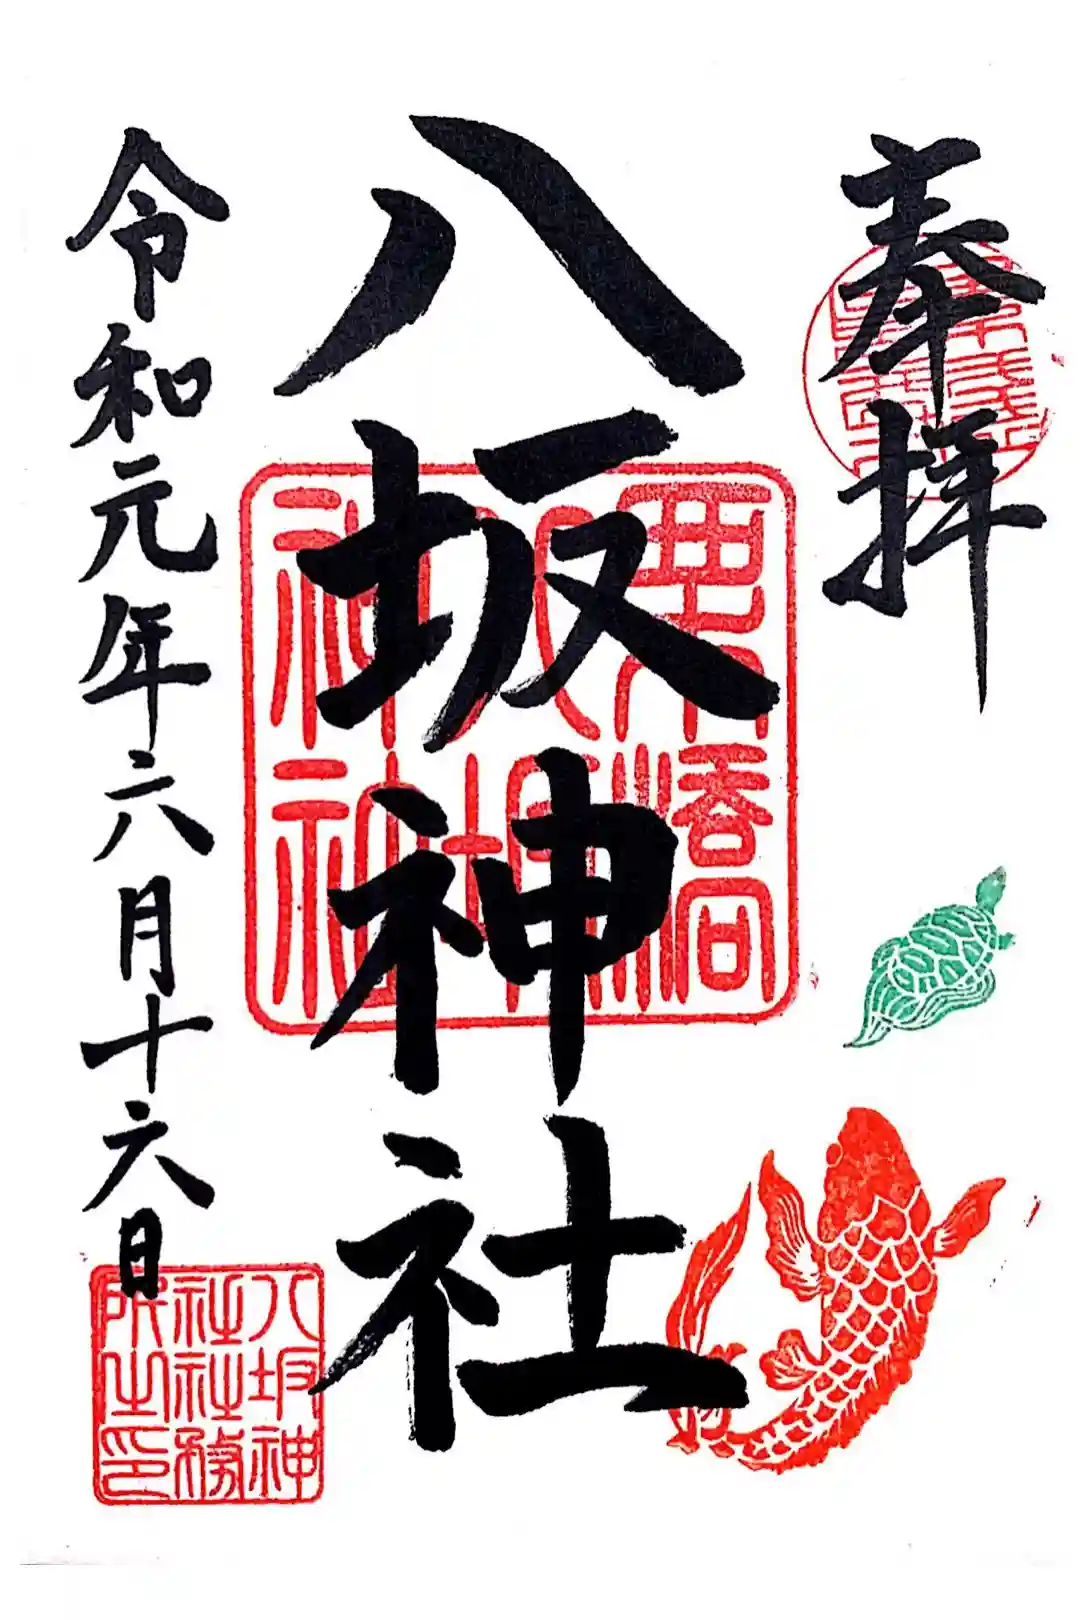 奉拝
八坂神社
令和元年六月十六日
八坂神
社社務
所之印